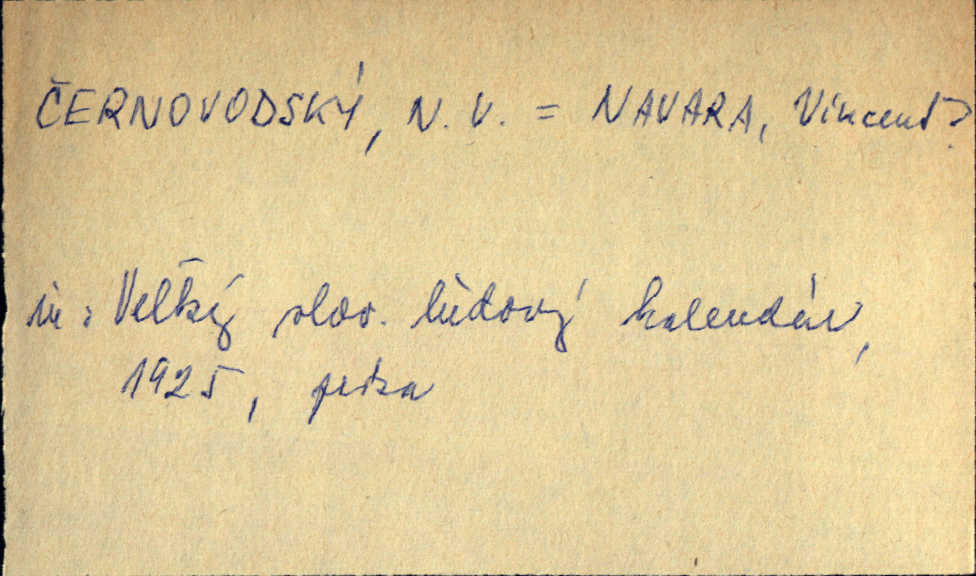 ČERNOVODSKÝ, N. V. = NAVARA, Vincent?
in: Veľký slov. ľudový kalendár,
1925, próza